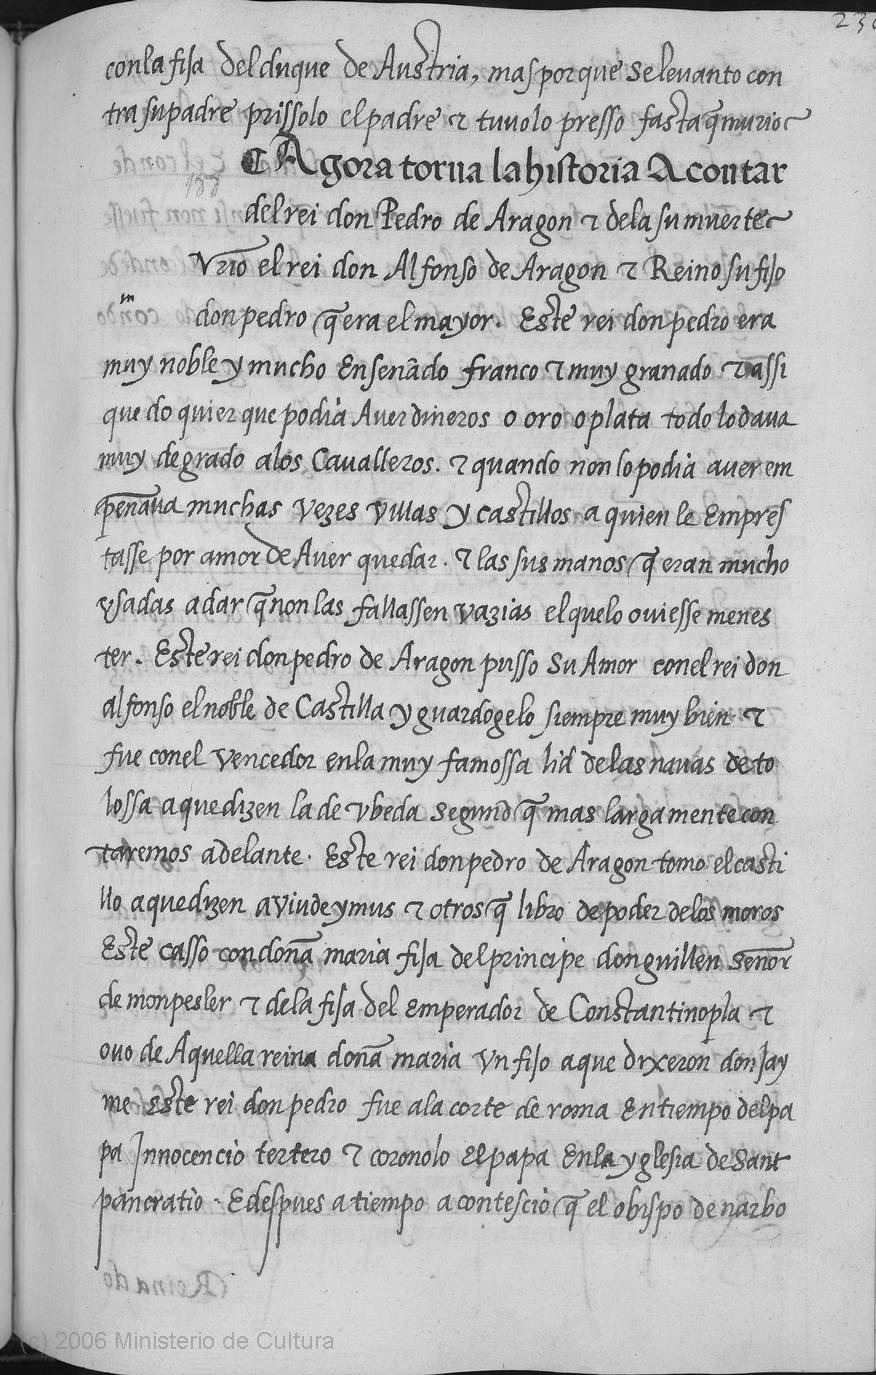 230
conla fija del duque de Austria, mas por que se levanto con
tra su padre prissolo el padre & tuvolo presso fasta q̃ murio
¶ Agora torna la historia A contar
188
del rei don Pedro de Aragon & de la su muerte
Vrio el rei don Alfonso de Aragon & Reino su fijo
m
don pedro q̃ era el mayor. Este rei don pedro era
muy noble y mucho Ensenãdo franco & muy granado & assi
que do quier que podia Aver dineros o oro o plata todo lo dava
muy de grado a los Cavalleros. & quando non lo podia aver em
peñava muchas vezes villas y castillos a quien le Empres
tasse por amor de Aver que dar. & las sus manos q̃ eran mucho
vsadas a dar q̃ non las fallassen vazias el que lo oviesse menes
ter. Este rei don pedro de Aragon pusso su Amor con el rei don
alfonso el noble de Castilla y guardogelo siempre muy bien &
fue con el vencedor en la muy famossa lid de las navas de to
lossa a que dizen la de vbeda segund q̃ mas largamente con
taremos adelante. Este rei don pedro de Aragon tomo el casti
llo a que dizen aviudeymus & otros q̃ libro de poder de los moros
Este casso con doña maria fija del principe don guillen señor
de monpesler & de la fija del Emperador de Constantinopla &
ovo de Aquella reina doña maria vn fijo a que dixeron don Jay
me Este rei don pedro fue a la corte de roma En tiempo del pa
pa Innocencio tertero & coronolo El papa En la yglesia de Sant
pancratio. E despues a tiempo a contescio q̃ el obispo de narbo
(c) 2006 Ministerio de Cultura